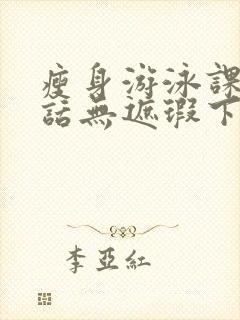 瘦身游泳課
話無遮瑕下
李亞紅